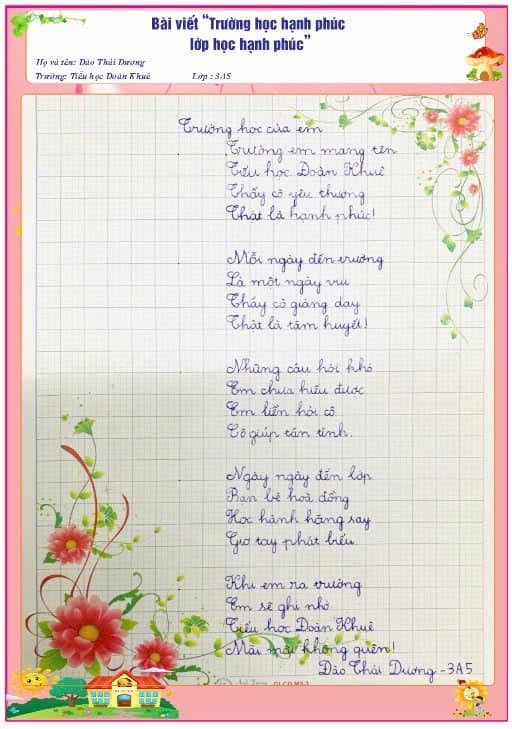 Bài viết “Trường học hạnh phúc
lớp học hạnh phúc”
Họ và tên: Đào Thái Dương
Trường: Tiểu học Đoàn Khuê Lớp : 3A5
Trường học của em
Trường em mang tên
Tiểu học Đoàn Khuê
Thầy cô yêu thương
Thật là hạnh phúc!
Mỗi ngày đến trường
Là một ngày vui
Thầy cô giảng dạy
Thật là tâm huyết!
Những câu hỏi khó
Em chưa hiểu được
Em liền hỏi cô
Cô giúp tận tình.
Ngày ngày đến lớp
Bạn bè hoà đồng
Học hành hăng say
Giơ tay phát biểu.
Khi em ra trường
Em sẽ ghi nhớ
Tiểu học Đoàn Khuê
Mãi mãi không quên!
Đào Thái Dương - 3A5